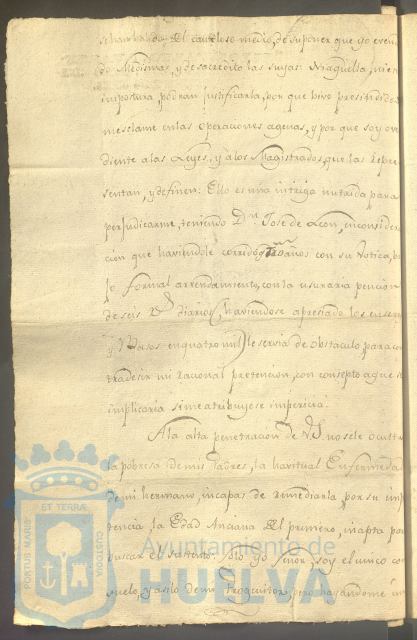 se han balido del cauteloso medio, de suponer que yo
do Medisinas, y desacredito las suyas: Niaquella, ni en
impostura, podran justificarla, por que vivo presindido
mesclame en las Operaciones agenas, y por que soy ove
diente a las Leyes, y a los Magistrados, que las Repre
sentan, y definen: Ello es una intriga nutrida para
perjudicarme, teniendo Dn. José de Leon, en considera
cion que haviendole corrido años con su Votica,
lo formal arrendamiento, con la usuraria pencion
de seis Rs. diarios, haviendose apresiado los
y Vasos en quatro mil le servia de obstaculo para con
tradesir mi racional pretencion, con consepto a que se
implicaria si me atribuyese impericia.
A la alta penetracion de V.S. no se le oculta
la pobresa de mis Padres, la havitual Enfermedad
de mi hermano, incapas de remediarla, por su imp
tencia, la Edad Anciana del primero, inapta para
buscar el sustento. Solo yo Señor soy el unico con
suelo, y asilo de mi Progenitor, pero hayandome im
ET TERRÆ
PORTUS MARIS
CUSTODIA
Ayuntamiento de
HUELVA